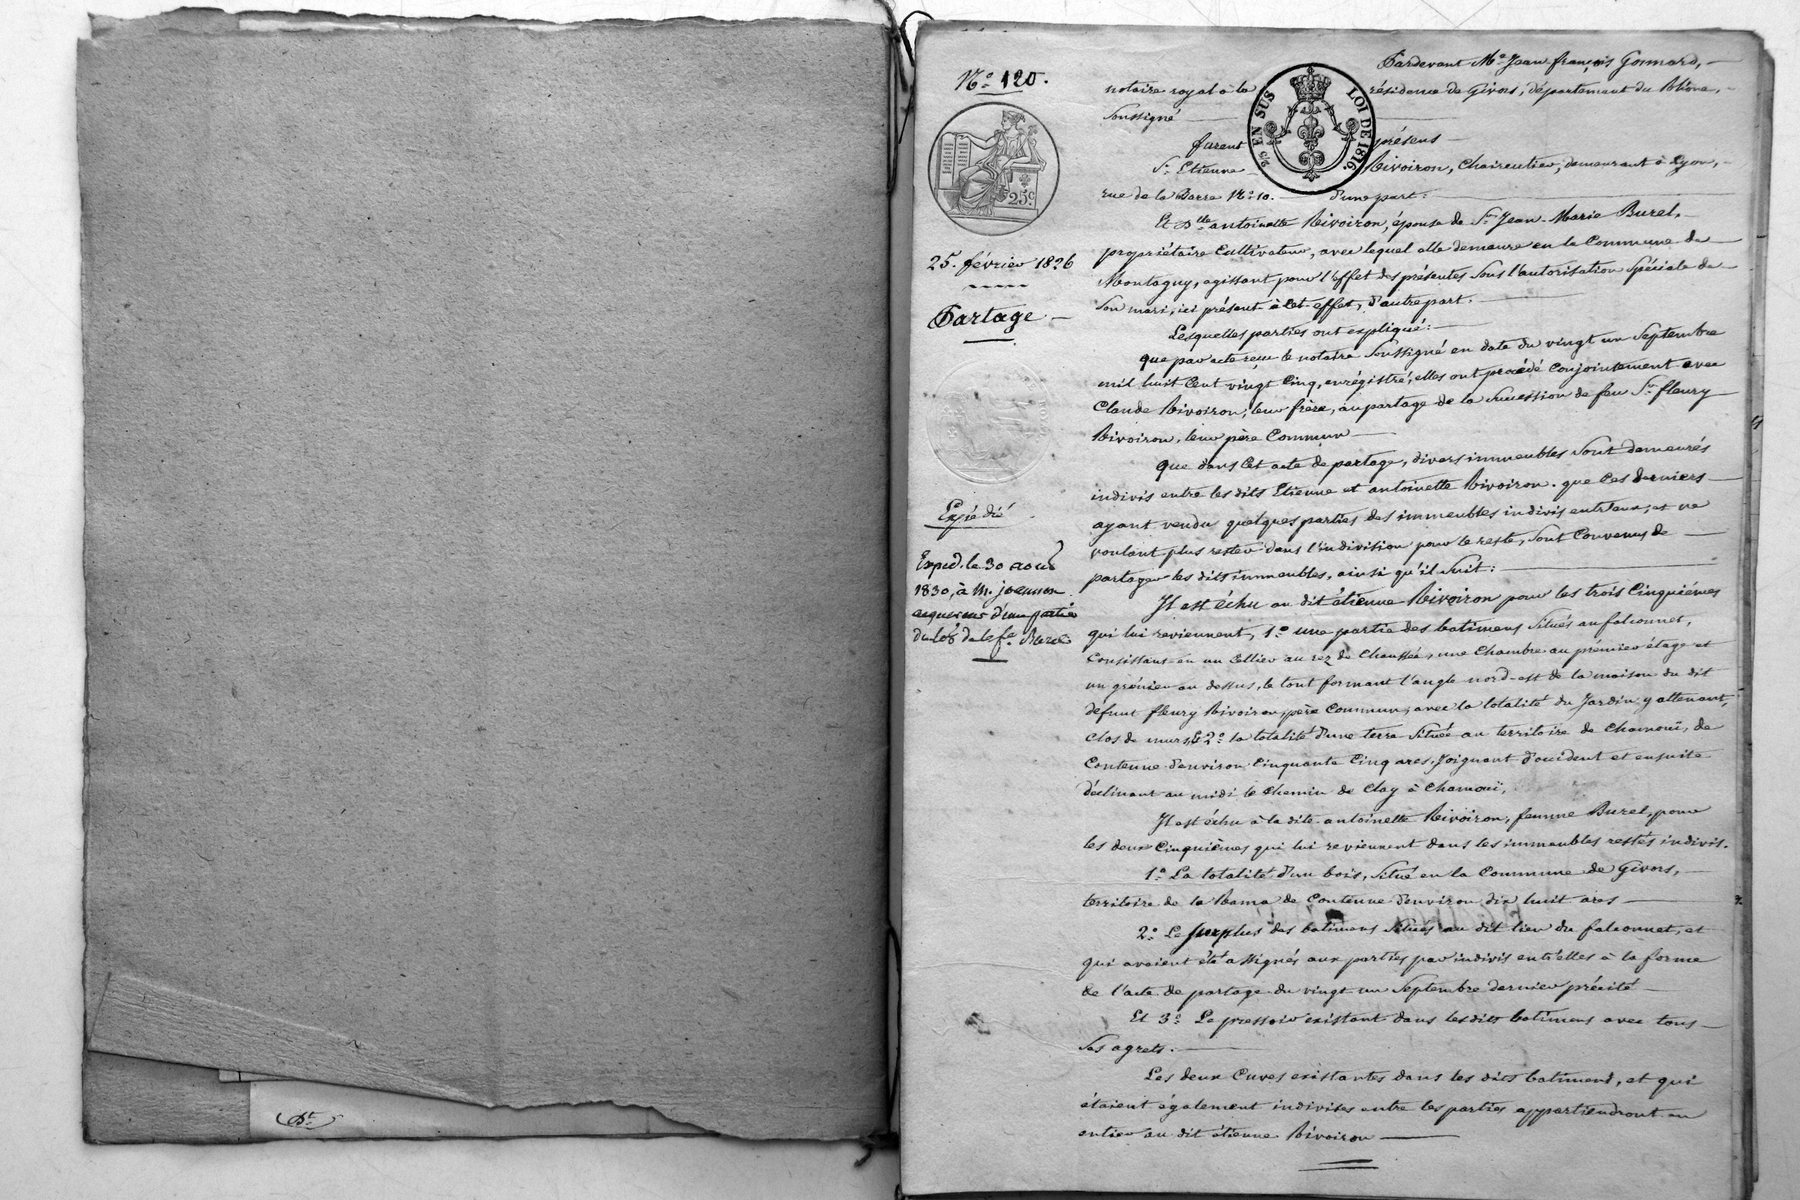 N.º 120.
25.c
25. février 1826
Partage
Expédié
Exped. le 30 aout
1830, à M. joannon
acquereur d'une partie
du lot de la fe. Burel
EN SUS LOI DE 1816.
Pardevant Me. Jean françois Gonnard,
notaire royal à la résidence de Givors, département du Rhône,
Soussigné
furent présens
Sr. Etienne Rivoiron, Chaircutier, demeurant à Lyon,
rue de la Barre N.º 10. d'une part:
Et Dlle antoinette Rivoiron, épouse de Sr. Jean-Marie Burel,
propriétaire Cultivateur, avec lequel elle demeure en la Commune de
Montagny, agissant pour l'effet des présentes Sous l'autorisation Spéciale de
Son mari, ici présent à cet effet, d'autre part.
Lesquelles parties ont expliqué:
que par acte reçu le notaire Soussigné en date du vingt un Septembre
mil huit Cent vingt Cinq, enrégistré, elles ont procédé conjointement avec
Claude Rivoiron, leur frère, au partage de la Succession de feu Sr. fleury
Rivoiron, leur père Commun
Que dans cet acte de partage, divers immeubles Sont demeurés
indivis entre les dits Etienne et antoinette Rivoiron. que Ces derniers
ayant vendu quelques parties des immeubles indivis entr'eux, et ne
voulant plus rester dans l'indivision pour le reste, Sont Convenus de
partager les dits immeubles, ainsi qu'il Suit:
Il est échu au dit étienne Rivoiron pour les trois Cinquiémes
qui lui reviennent, 1.º une partie des batimens Situés au falconnet,
Consistans en un Cellier au rez de Chaussée, une Chambre au prémier étage et
un grénier au dessus, le tout formant l'angle nord-est de la maison du dit
défunt fleury Rivoiron, père Commun, avec la totalité du Jardin y attenant,
clos de murs, Et 2.º la totalité d'une terre Située au territoire de Chamouï, de
Contenue d'environ Cinquante Cinq ares, Joignant d'occident et ensuite
déclinant au midi le Chemin de Clay à Chamouï,
Il est échu à la dite antoinette Rivoiron, femme Burel, pour
les deux Cinquièmes qui lui reviennent dans les immeubles restés indivis.
1.º La totalité d'un bois, Situé en la Commune de Givors,
territoire de la Rama de Contenue d'environ dix huit ares
2.º Le surplus des batimens Situés au dit lieu du falconnet, et
qui avaient été assignés aux parties par indivis entr'elles à la forme
de l'acte de partage du vingt un Septembre dernier précité
Et 3.º Le pressoir existant dans les dits batimens avec tous
Ses agrets.
Les deux Cuves existantes dans les dits batimens, et qui
étaient également indivises entre les parties appartiendront en
entier au dit étienne Rivoiron